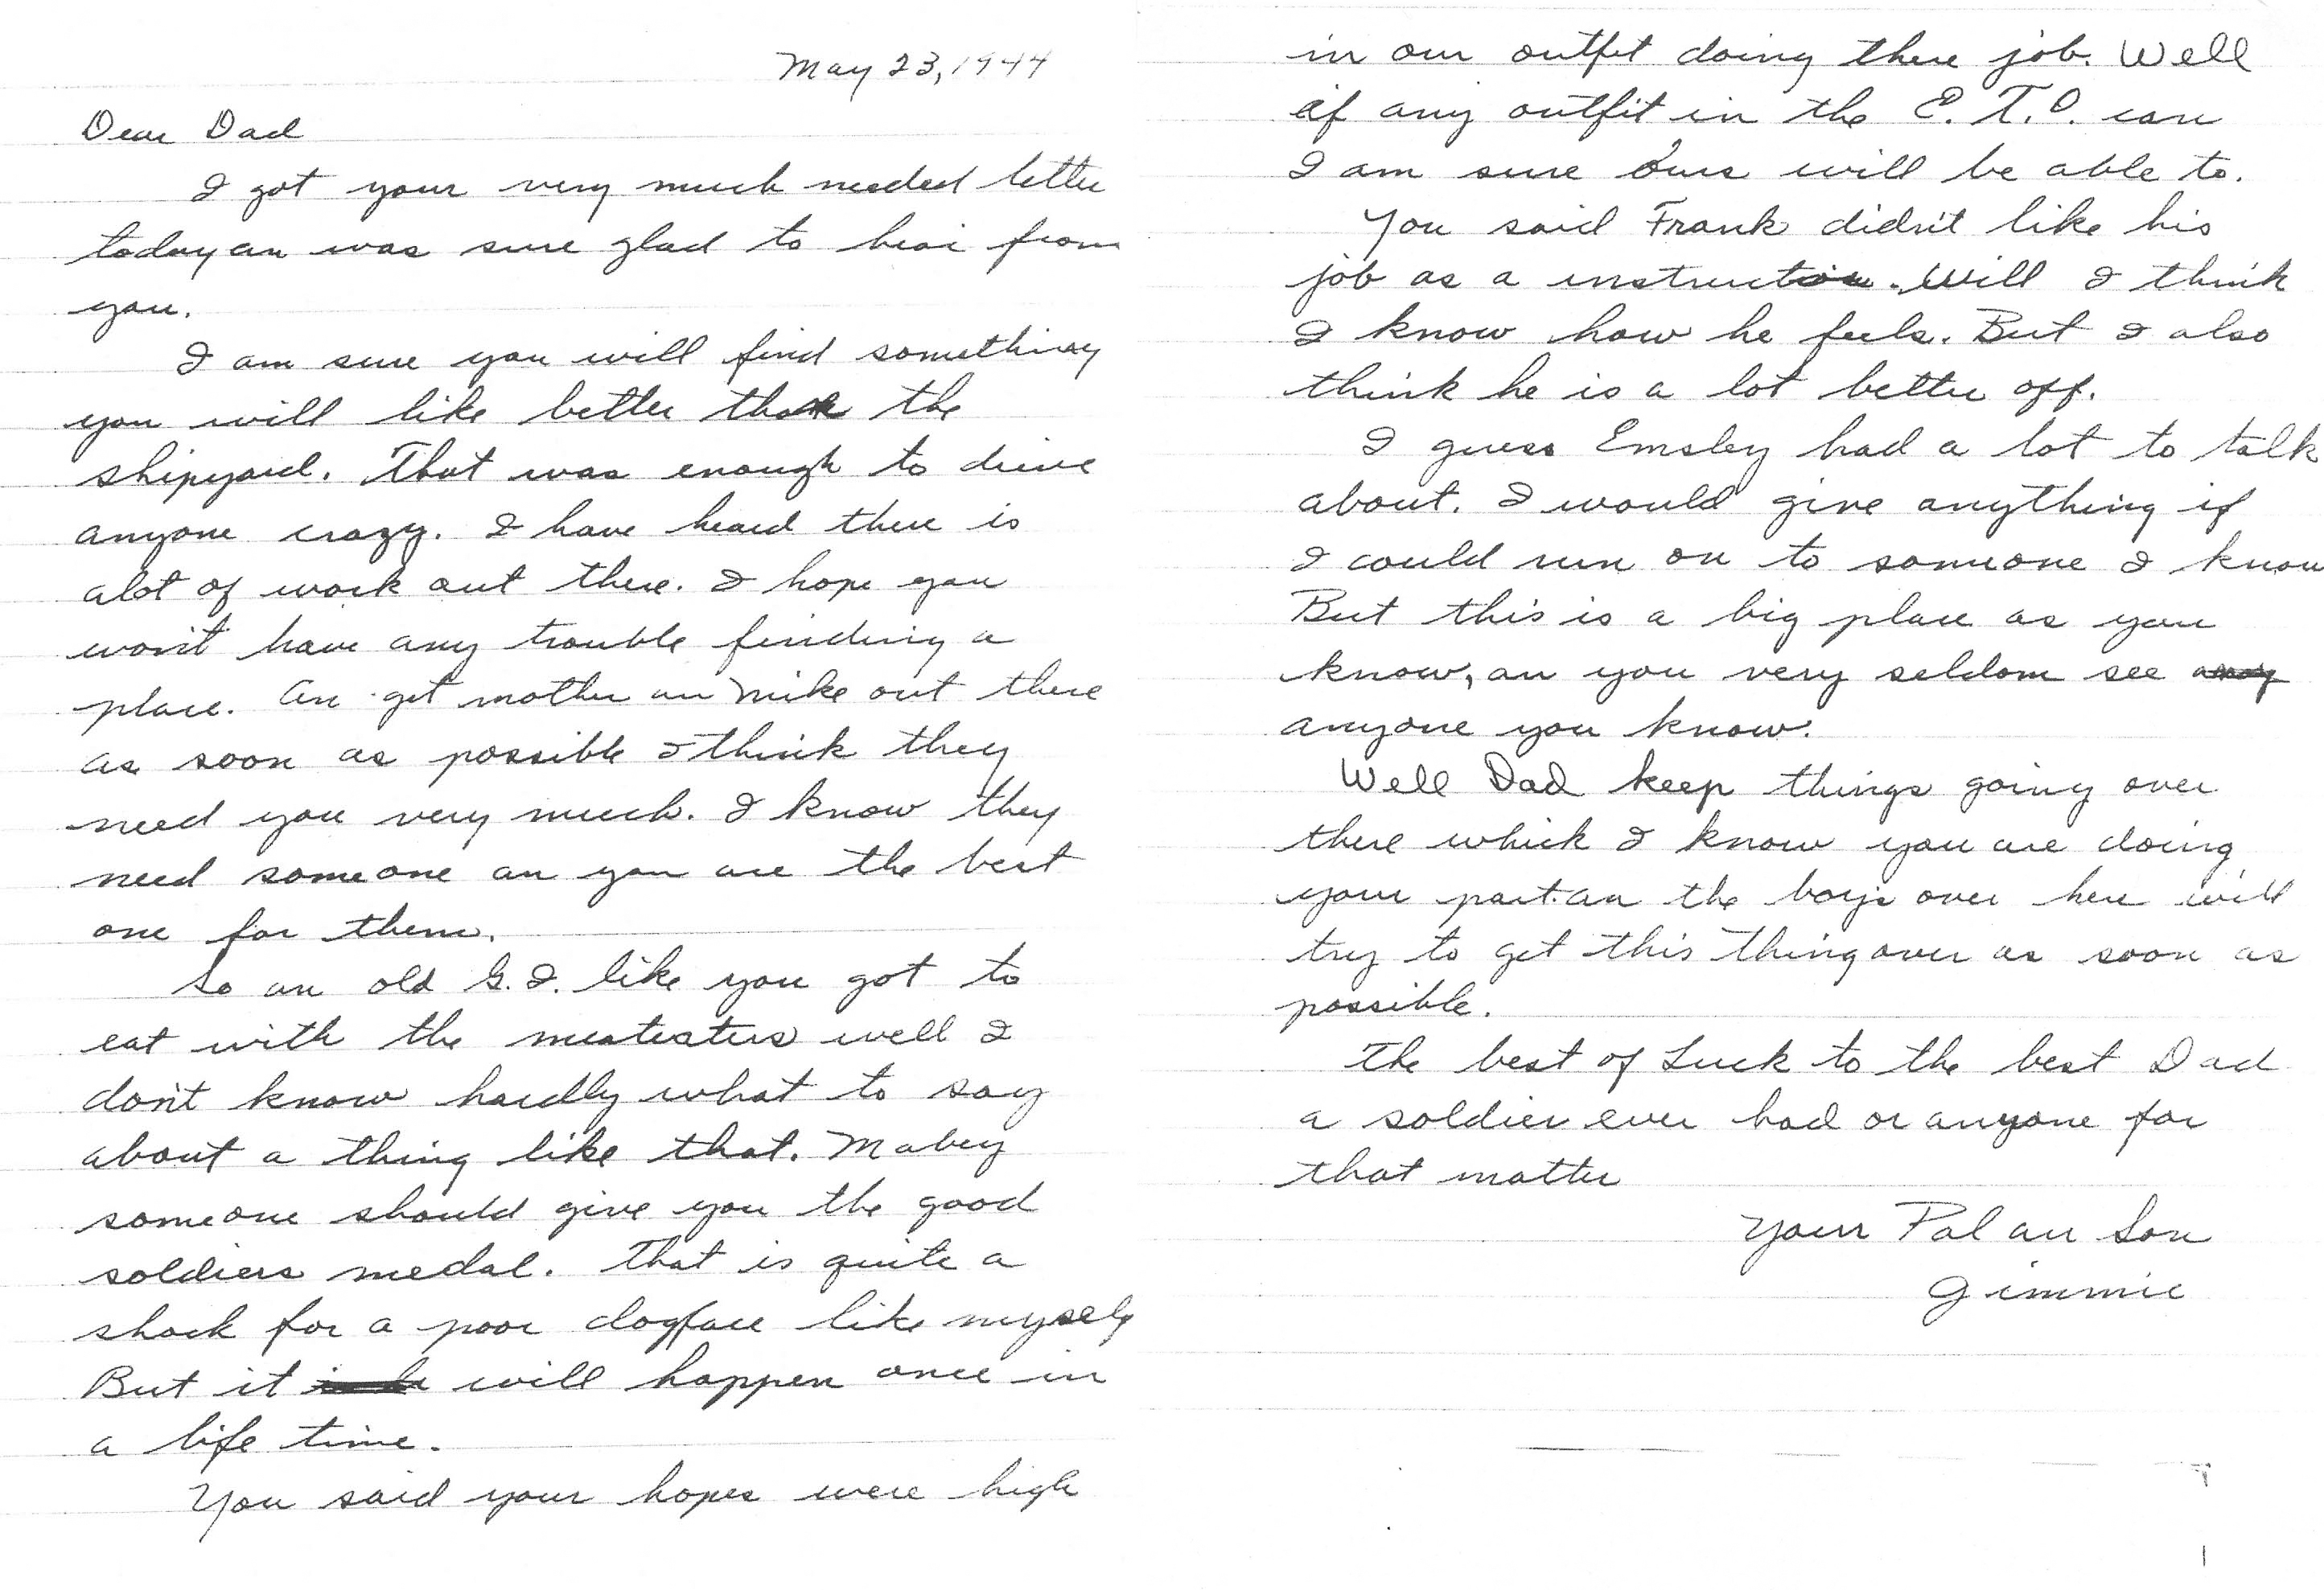 May 23, 1944
Dear Dad
I got your very much needed letter
today an was sure glad to hear from
you.
I am sure you will find something
you will like better than the
shipyard. That was enough to drive
anyone crazy. I have heard there is
alot of work out there. I hope you
won't have any trouble finding a
place. An get mother an Mike out there
as soon as possible I think they
need you very much. I know they
need someone an you are the best
one for them.
So an old G.I. like you got to
eat with the meateaters well I
don't know hardly what to say
about a thing like that. Mabey
someone should give you the good
soldiers medal. That is quite a
shock for a poor dogface like myself
But it will happen once in
a life time.
You said your hopes were high
in our outfit doing there job. Well
if any outfit in the E.T.O. can
I am sure ours will be able to.
You said Frank didn't like his
job as a instructor. Will I think
I know how he feels. But I also
think he is a lot better off.
I guess Emsley had a lot to talk
about. I would give anything if
I could run on to someone I know
But this is a big place as you
know, an you very seldom see
anyone you know.
Well Dad keep things going over
there which I know you are doing
your part. an the boys over here will
try to get this thing over as soon as
possible.
The best of Luck to the best Dad
a soldier ever had or anyone for
that matter
Your Pal an Son
Jimmie